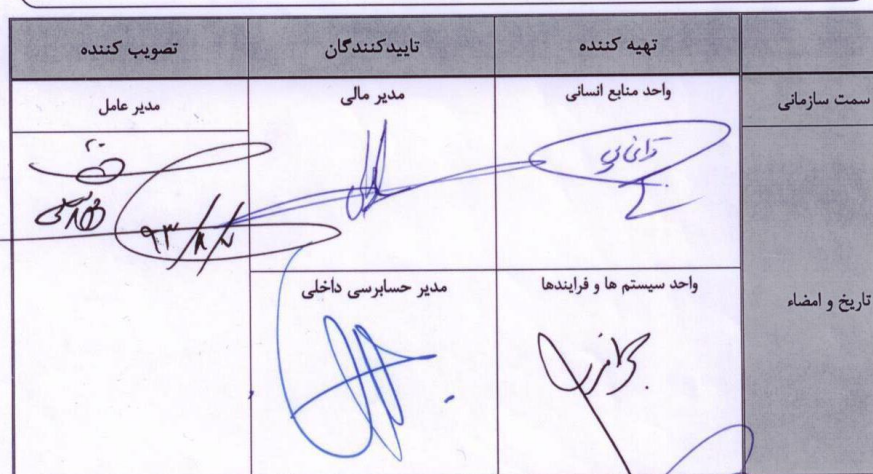 تهیه کننده
تاییدکنندگان
تصویب کننده
سمت سازمانی
واحد منابع انسانی
مدیر مالی
مدیر عامل
۹۳/۸/۷
تاریخ و امضاء
واحد سیستم ها و فرایندها
مدیر حسابرسی داخلی